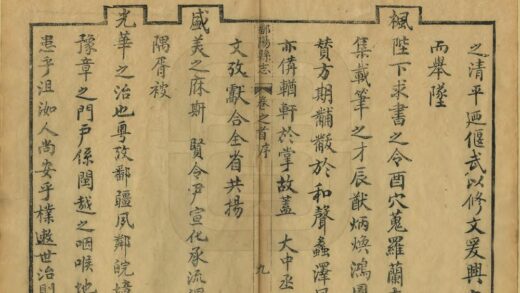 之清平迺偃武以修文爰興
而舉墜
楓陛下求書之令酉穴蒐羅蘭
集載筆之才辰猷炳煥鴻
贊方期黼黻於和聲蠡澤
亦儕輶軒於掌故蓋 大中丞
鄱陽縣志 卷之首序 九
文攷獻合全省共揚
盛美之庥斯 賢令尹宣化承流
隅胥被
光華之治也粵攷鄱疆夙鄰皖
豫章之門戶係閩越之咽喉地
愚乎沮洳人尚安乎樸遬世治則